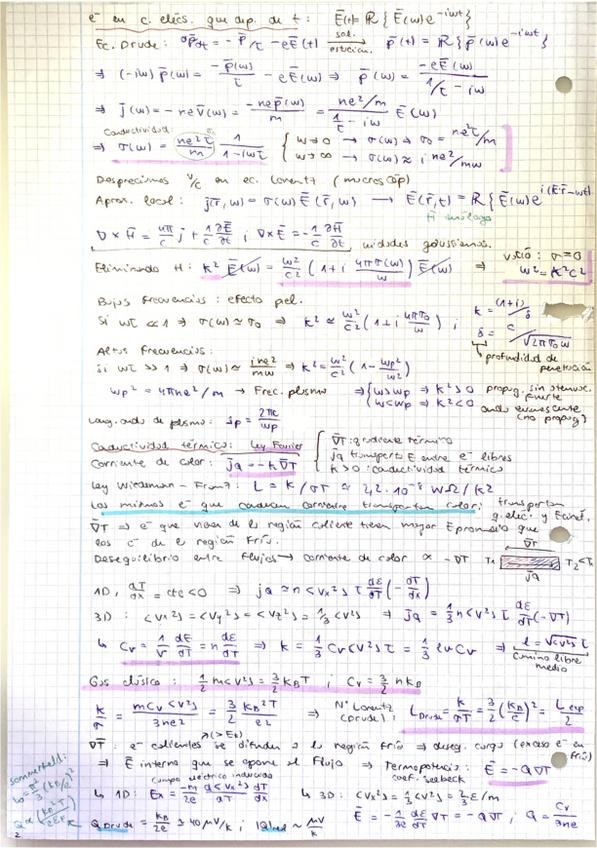 e⁻ en c. elécs. que dep. de t: Ē(t) = ℝ{Ē(w)e^{-iwt}}
Ec. Drude: dp̄/dt = -p̄/τ - eĒ(t) → sol. estacion. p̄(t) = ℝ{p̄(w)e^{-iwt}}
⇒ (-iw)p̄(w) = -p̄(w)/τ - eĒ(w) ⇒ p̄(w) = -eĒ(w)/(1/τ - iw)
⇒ j̄(w) = -nev̄(w) = -nep̄(w)/m = (ne²/m)/(1/τ - iw) Ē(w)
Conductividad:
⇒ σ(w) = ne²τ/m · 1/(1-iwτ) { w→0 → σ(w) → σ₀ = ne²τ/m
w→∞ → σ(w) ≈ i ne²/mw
Despreciamos v/c en ec. Lorentz (microscóp)
Aprox. local: j̄(r̄,w) = σ(w)Ē(r̄,w) → Ē(r̄,t) = ℝ{Ē(w)e^{i(k̄·r̄-wt)}}
H̄ análogo
∇×H̄ = 4π/c j + 1/c ∂Ē/∂t ; ∇×Ē = -1/c ∂H̄/∂t, unidades gaussianas.
Eliminando H: k² Ē(w) = w²/c² (1 + i 4πσ(w)/w) Ē(w) ⇒ vacío: σ=0
w² = k²c²
Bajas frecuencias: efecto pel.
Si wτ <<1 ⇒ σ(w) ≈ σ₀ ⇒ k² ≈ w²/c² (1 + i 4πσ₀/w) ; k = (1+i)/δ
δ = c/√(2πσ₀w)
profundidad de penetración
Altas frecuencias:
Si wτ >>1 ⇒ σ(w) ≈ ine²/mw ⇒ k² = w²/c² (1 - wp²/w²)
wp² = 4πne²/m → Frec. plasma ⇒ { w>wp ⇒ k²>0 propag. sin atenuac. fuerte
w<wp ⇒ k²<0 onda evanescente (no propag)
Long. onda de plasma: λp = 2πc/wp
Conductividad térmica: Ley Fourier { ∇̄T: gradiente térmico
Corriente de calor: j̄q = -k∇̄T
jq transporta E entre e⁻ libres
k>0: conductividad térmica
Ley Wiedeman-Franz: L = k/σT ≈ 2'2·10⁻⁸ WΩ/K²
Los mismos e⁻ que conducen corriente transportan calor: transportan q. eléc. y Ecinét.
∇̄T ⇒ e⁻ que vienen de la región caliente tienen mayor E promedio que
los e⁻ de la región fría.
Desequilibrio entre flujos → corriente de calor ∝ -∇T
∇̄T
T₁ T₂<T₁
j̄q
1D, dT/dx = cte <0 ⇒ jq ≈ n<vx²>τ dε/dT (-dT/dx)
3D: <vx²> = <vy²> = <vz²> = 1/3 <v²> ⇒ jq = 1/3 n<v²>τ dε/dT (-∇T)
↳ Cv = 1/V dE/dT = n dε/dT ⇒ k = 1/3 Cv<v²>τ = 1/3 lvCv ⇒ l = √<v²>τ
Camino libre medio
Gas clásico: 1/2 m<v²> = 3/2 kBT ; Cv = 3/2 nkB
k/σ = mCv<v²>/3ne² = 3/2 kB²T/e² ⇒ Nº Lorentz (Drude): LDrude = k/σT = 3/2 (kB/e)² = Lexp/2
∇̄T: e⁻ calientes (>Ek) se difunden a la región fría ⇒ deseq. carga (exceso e⁻ en frío)
⇒ Ē interno que se opone al flujo ⇒ Termopotencia: Ē = -Q∇T
campo eléctrico inducido
coef. Seebeck
↳ 1D: Ex = -m/2e d<vx²>/dT dT/dx ↳ 3D: <vx²> = 1/3<v²> = 2/3 ε/m
Ē = -1/3e dε/dT ∇T = -Q∇T, Q = Cv/3ne
QDrude = kB/2e ≈ 40 μV/K ; |Q|red ~ μV/K
Sommerfeld:
L₀ = π²/3 (kB/e)²